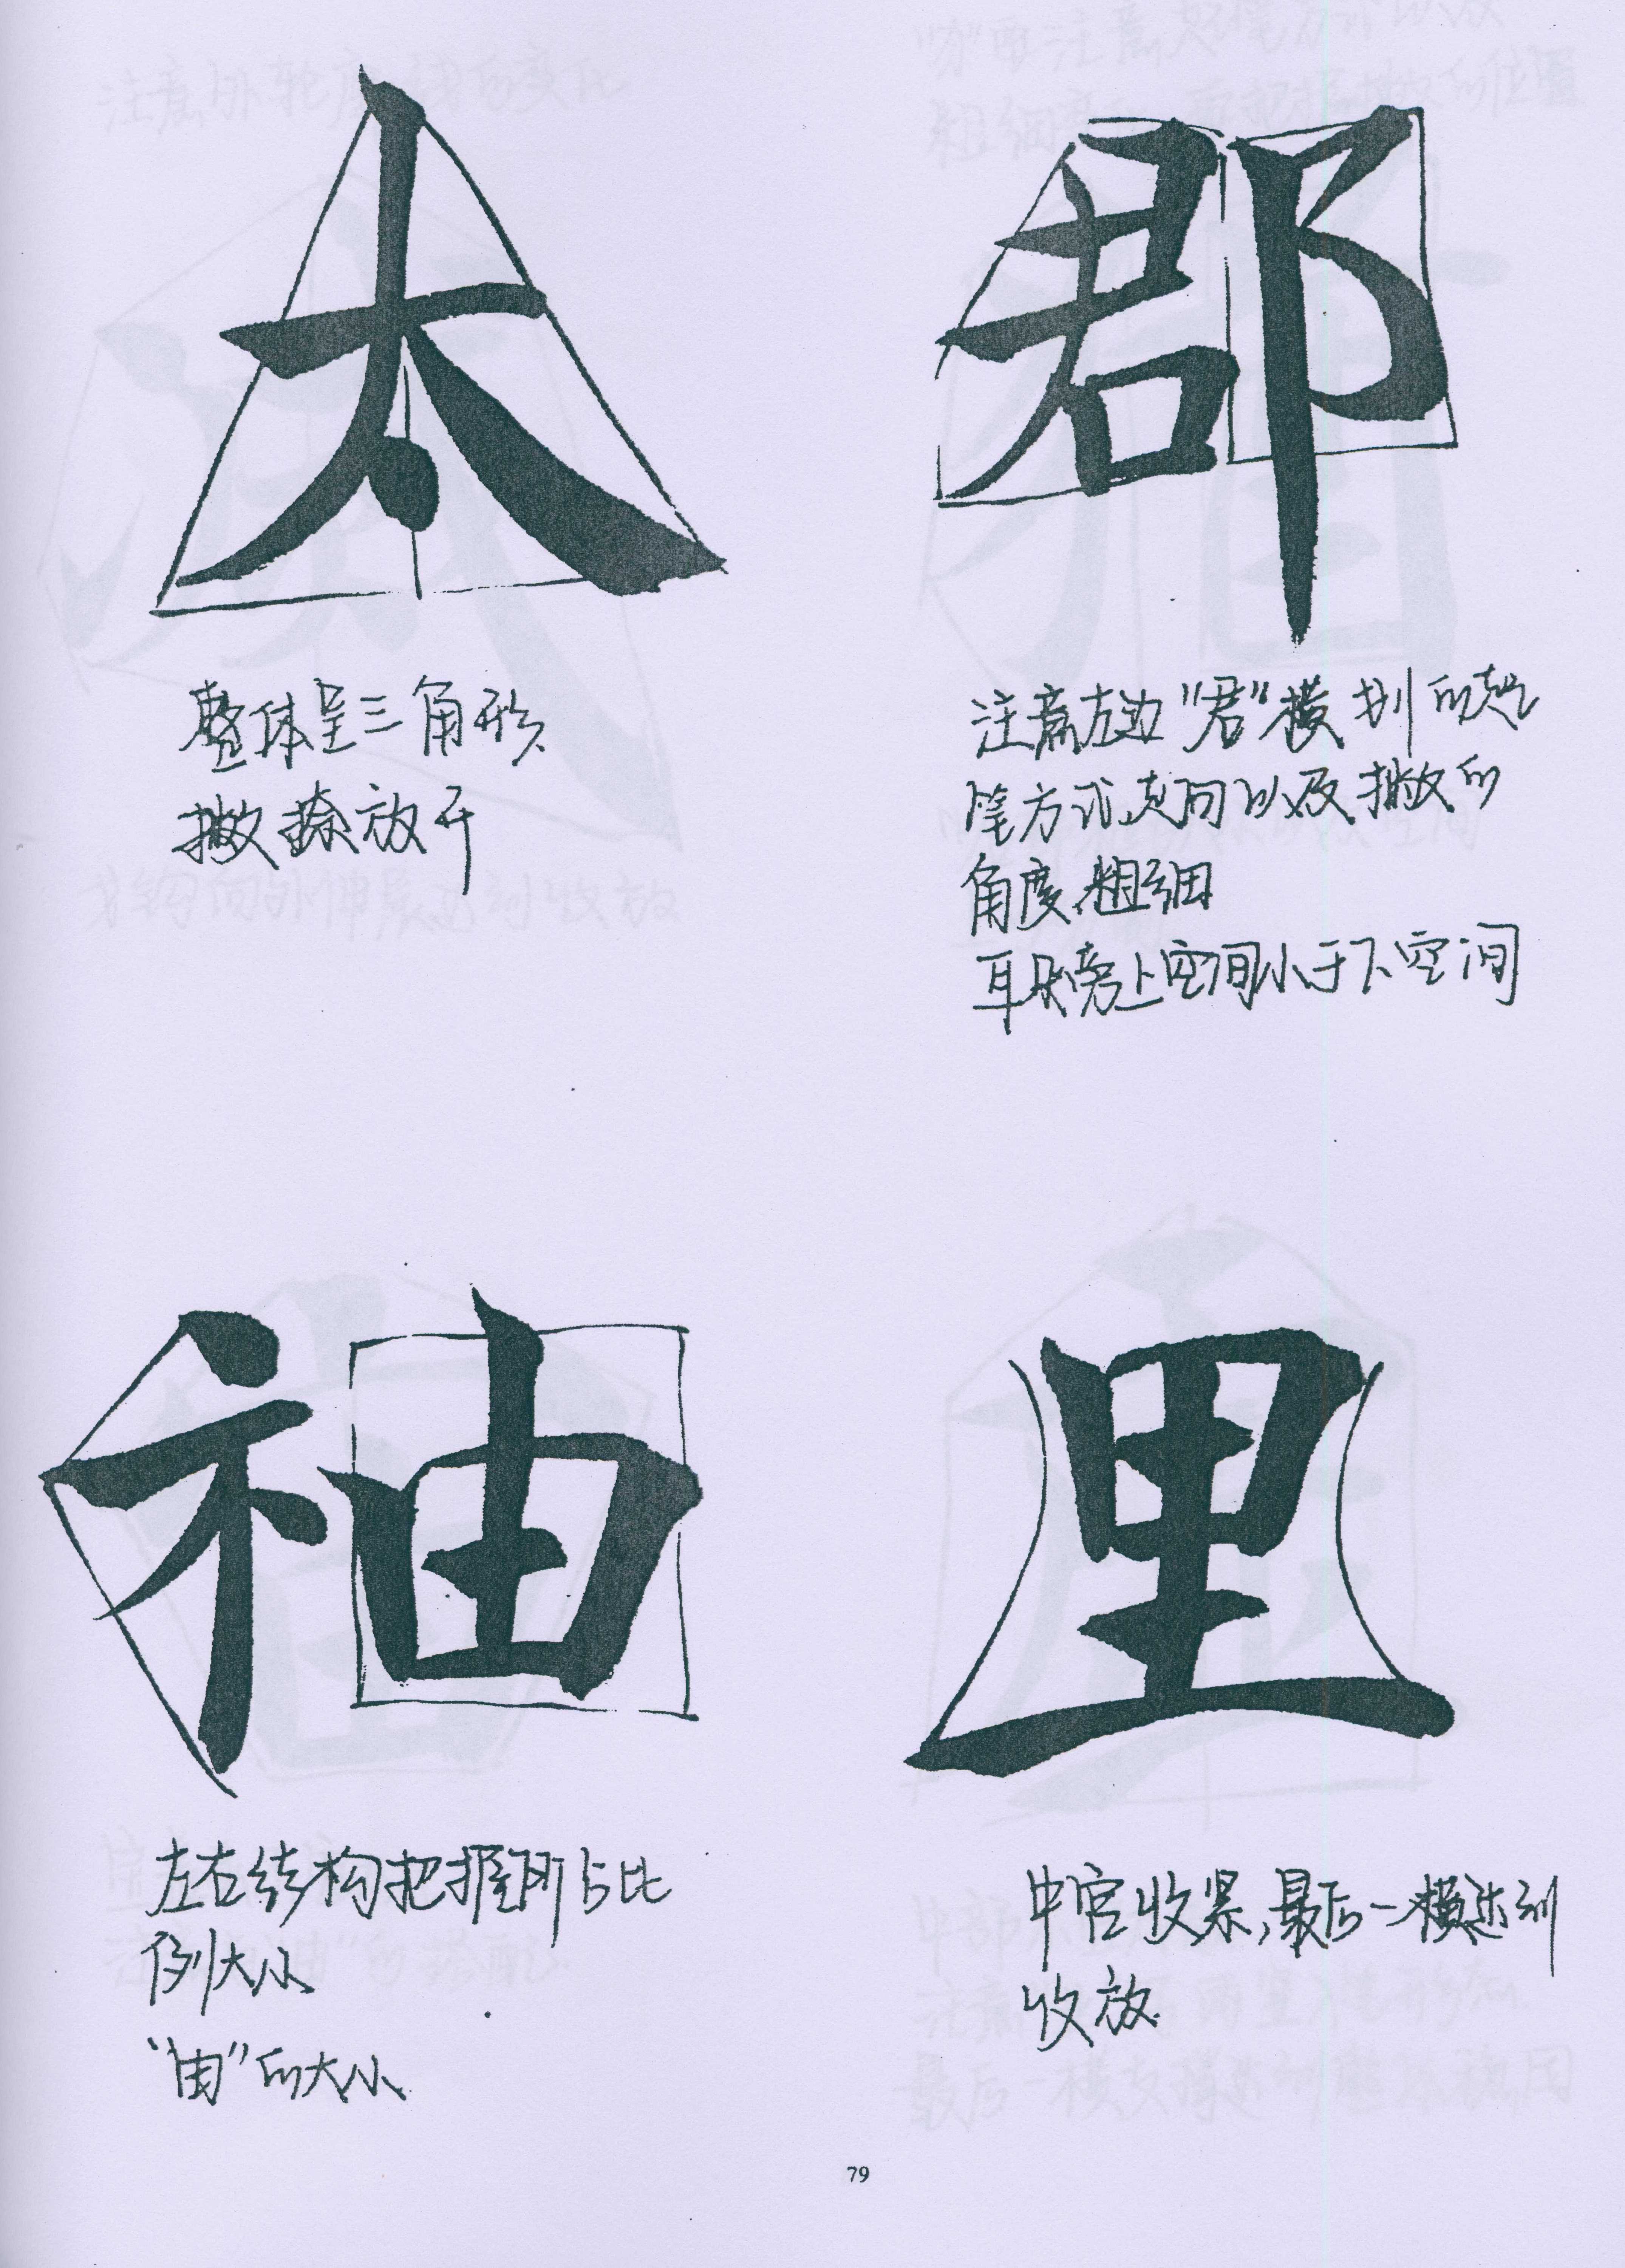 太
整体呈三角形
撇捺放开
郡
注意左边“君”横划的起
笔方式,空间以及撇的
角度、粗细
耳朵旁上空间小于下空间
袖
左右结构把握所占比
例大小
“由”的大小
里
中宫收紧,最后一横达到
收放
79